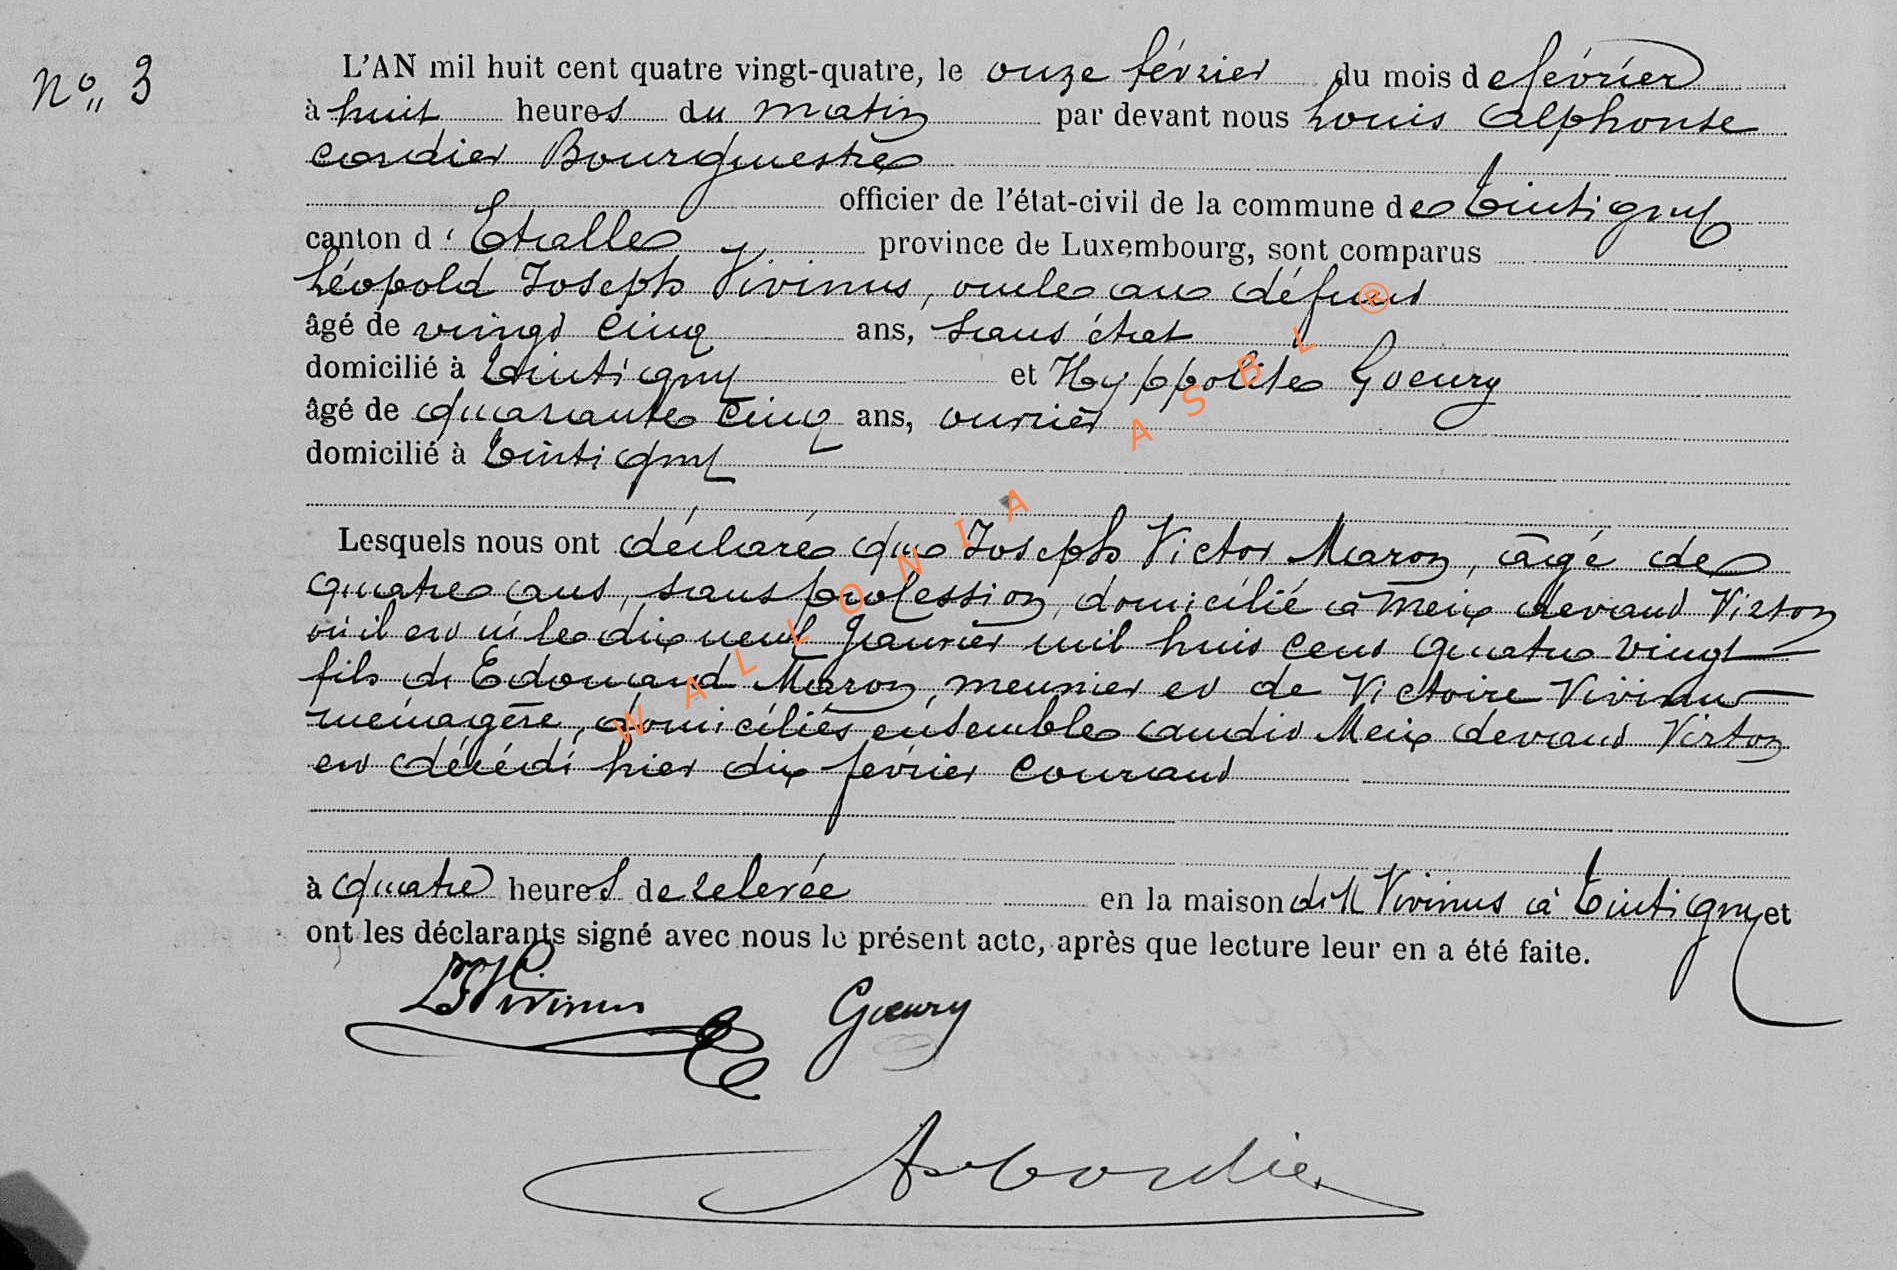 N° 3
L'AN mil huit cent quatre vingt-quatre, le onze février du mois de février
à huit heures du matin par devant nous Louis Alphonse
Cordier Bourgmestre
officier de l'état-civil de la commune de Tintigny
canton d'Etalle province de Luxembourg, sont comparus
Léopold Joseph Vivinus, oncle au défunt
âgé de vingt cinq ans, sans état
domicilié à Tintigny et Hyppolite Goeury
âgé de quarante cinq ans, ouvrier
domicilié à Tintigny
Lesquels nous ont déclaré que Joseph Victor Maron, âgé de
quatre ans, sans profession, domicilié à Meix devant Virton
où il est né le dix neuf Janvier mil huit cent quatre vingt
fils de Edouard Maron, meunier et de Victoire Vivinus
ménagère, domiciliés ensemble audit Meix devant Virton
est décédé hier dix février courant
à quatre heures de relevée en la maison de M Vivinus à Tintigny et
ont les déclarants signé avec nous le présent acte, après que lecture leur en a été faite.
LJVivinus Goeury
A Cordier
WALLONIA ASBL ®